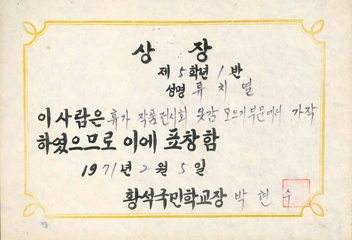 상 장
제 5학년 1 반
성명 류 치 열
이 사람은 휴가 작품전시회 옷감 모으기부문에서 가작
하였으므로 이에 표창함
1971년 2월 5일
황석국민학교장 박 현 수